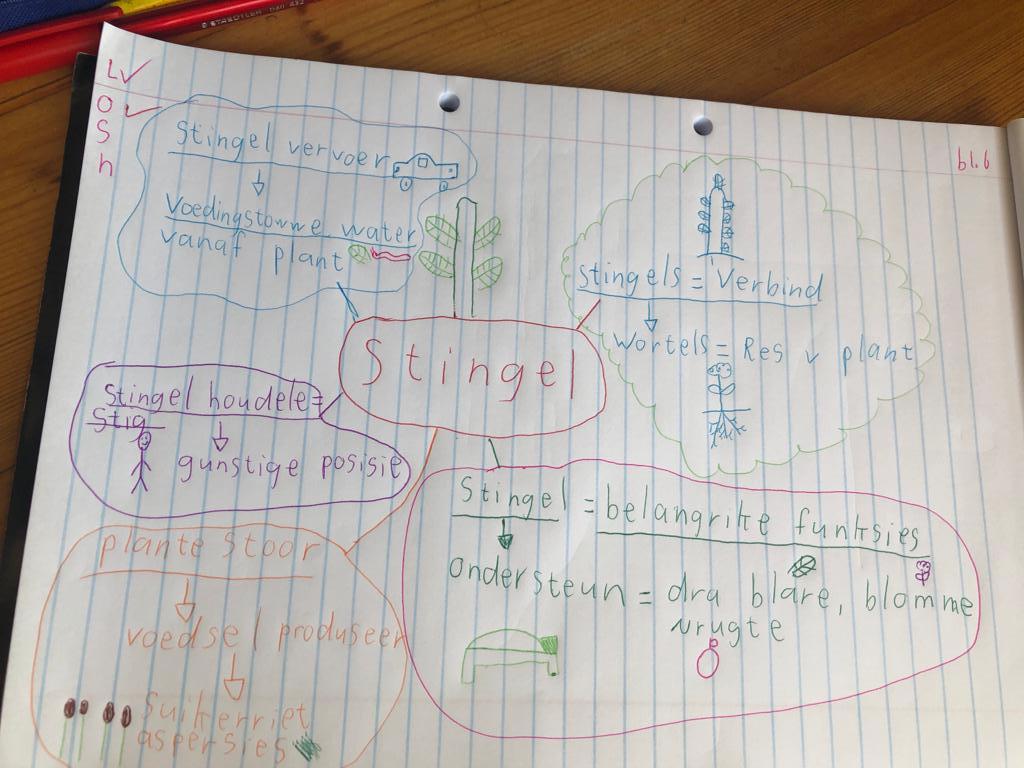 STAEDTLER
L
O
S
h
bl.9
Stingel vervoer
Voedingstowwe water
vanaf plant
Stingels = Verbind
Wortels = Res v plant
Stingel
Stingel houdele =
Stig
gunstige posisie
Stingel = belangrike funksies
ondersteun = dra blare, blomme
vrugte
plante stoor
voedsel produseer
Suikerriet
aspersies